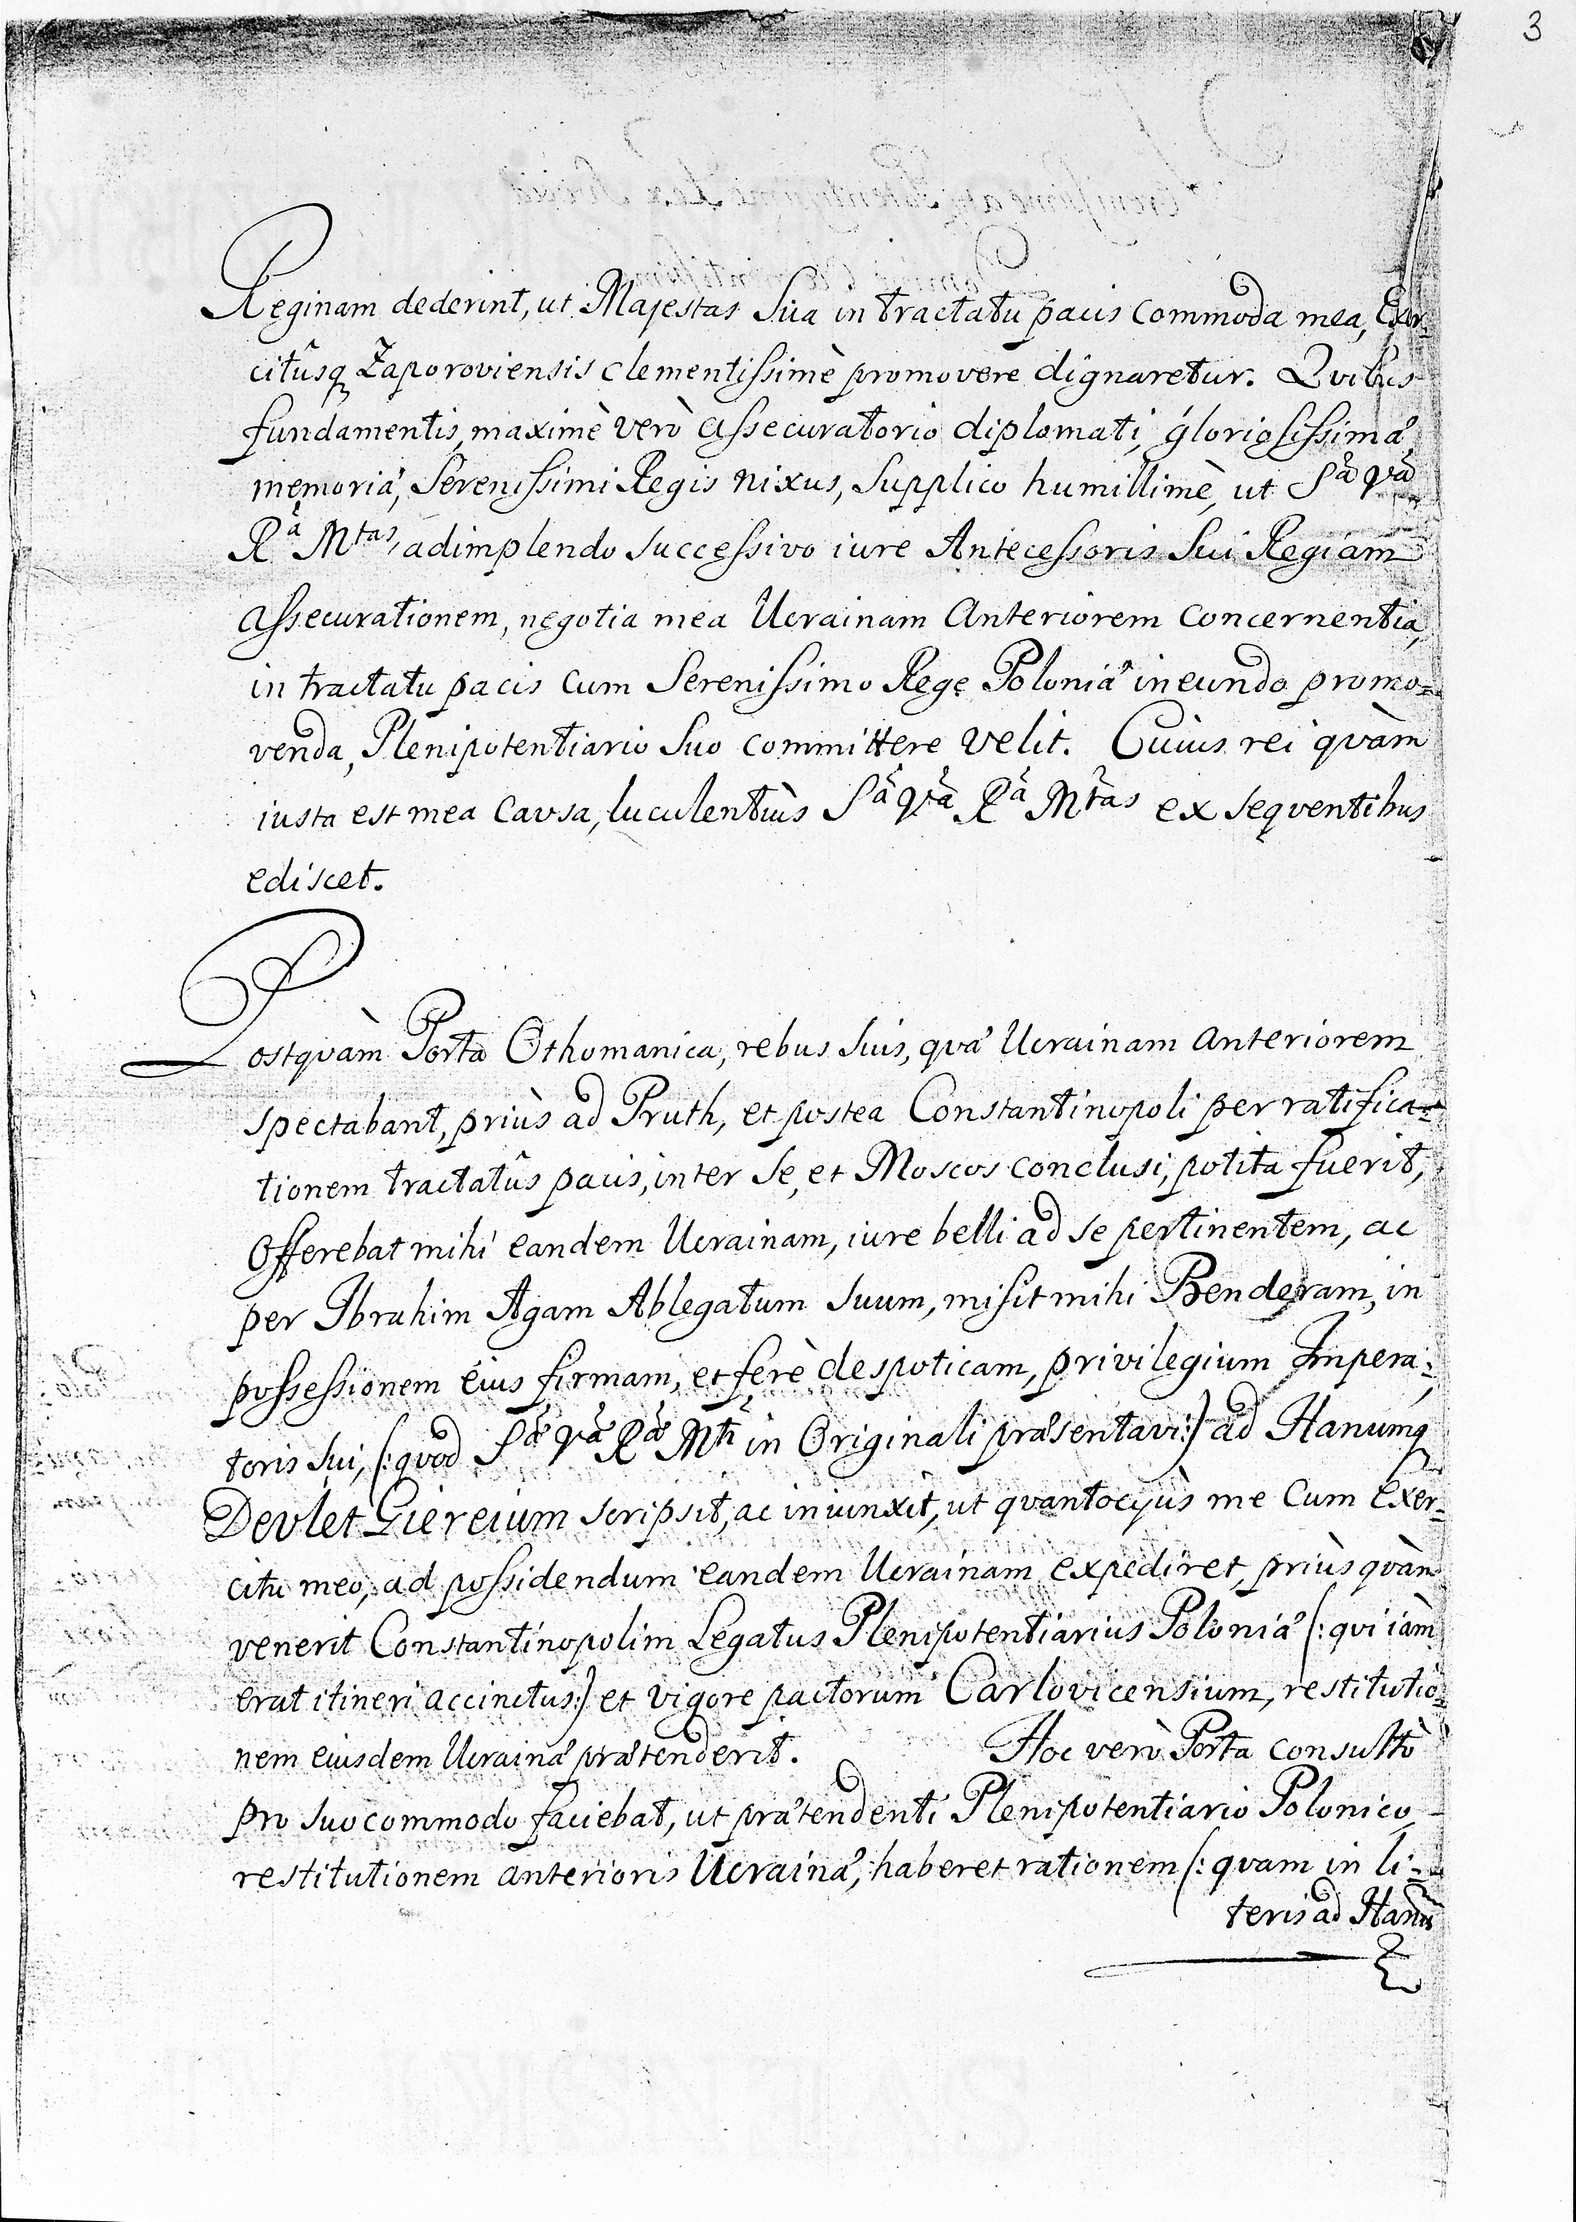 3
Reginam dederint, ut Majestas Sua in tractatu pacis commoda mea, Exer-
citûsq Zaporoviensis clementissimè promovere dignaretur. Qvibus
fundamentis, maximè verò assecuratorio diplomati, gloriosissimæ
memoriæ, Serenissimi Regis nixus, supplico humillimè, ut Sᵃ Vᵃ
Rᵃ Mᵗᵃˢ, adimplendo successivo iure Antecessoris Sui Regiam
assecurationem, negotia mea Ucrainam Anteriorem concernentia,
in tractatu pacis cum Serenissimo Rege Poloniæ ineundo promo=
venda, Plenipotentiario Suo committere velit. Cuius rei qvàm
iusta est mea causa, luculentiùs Sᵃ Vᵃ Rᵃ Mᵗᵃˢ ex seqventibus
ediscet.
Postqvàm Porta Othomanica, rebus suis, qvæ Ucrainam anteriorem
spectabant, priùs ad Pruth, et postea Constantinopoli per ratifica=
tionem tractatûs pacis, inter se, et Moscos conclusi, potita fuerit,
offerebat mihi eandem Ucrainam, iure belli ad se pertinentem, ac
per Ibrahim Agam Ablegatum suum, misit mihi Benderam, in
possessionem eius firmam, et ferè despoticam, privilegium Impera=
toris sui, (: quod Sæ Væ Ræ Mti in Originali præsentavi :) ad Hanumq
Devlet Giereium scripsit, ac iniunxit, ut qvantocyùs me cum Exer=
citu meo, ad possidendum eandem Ucrainam expediret, priùsqvàm
venerit Constantinopolim Legatus Plenipotentiarius Poloniæ (: qvi iàm
erat itineri accinctus :) et vigore pactorum Carlovicensium, restitutio=
nem eiusdem Ucrainæ prætenderit. Hoc verò Porta consultò
pro suo commodo faciebat, ut prætendenti Plenipotentiario Polonico
restitutionem anterioris Ucrainæ, haberet rationem (: qvam in li=
teris ad Hanũ